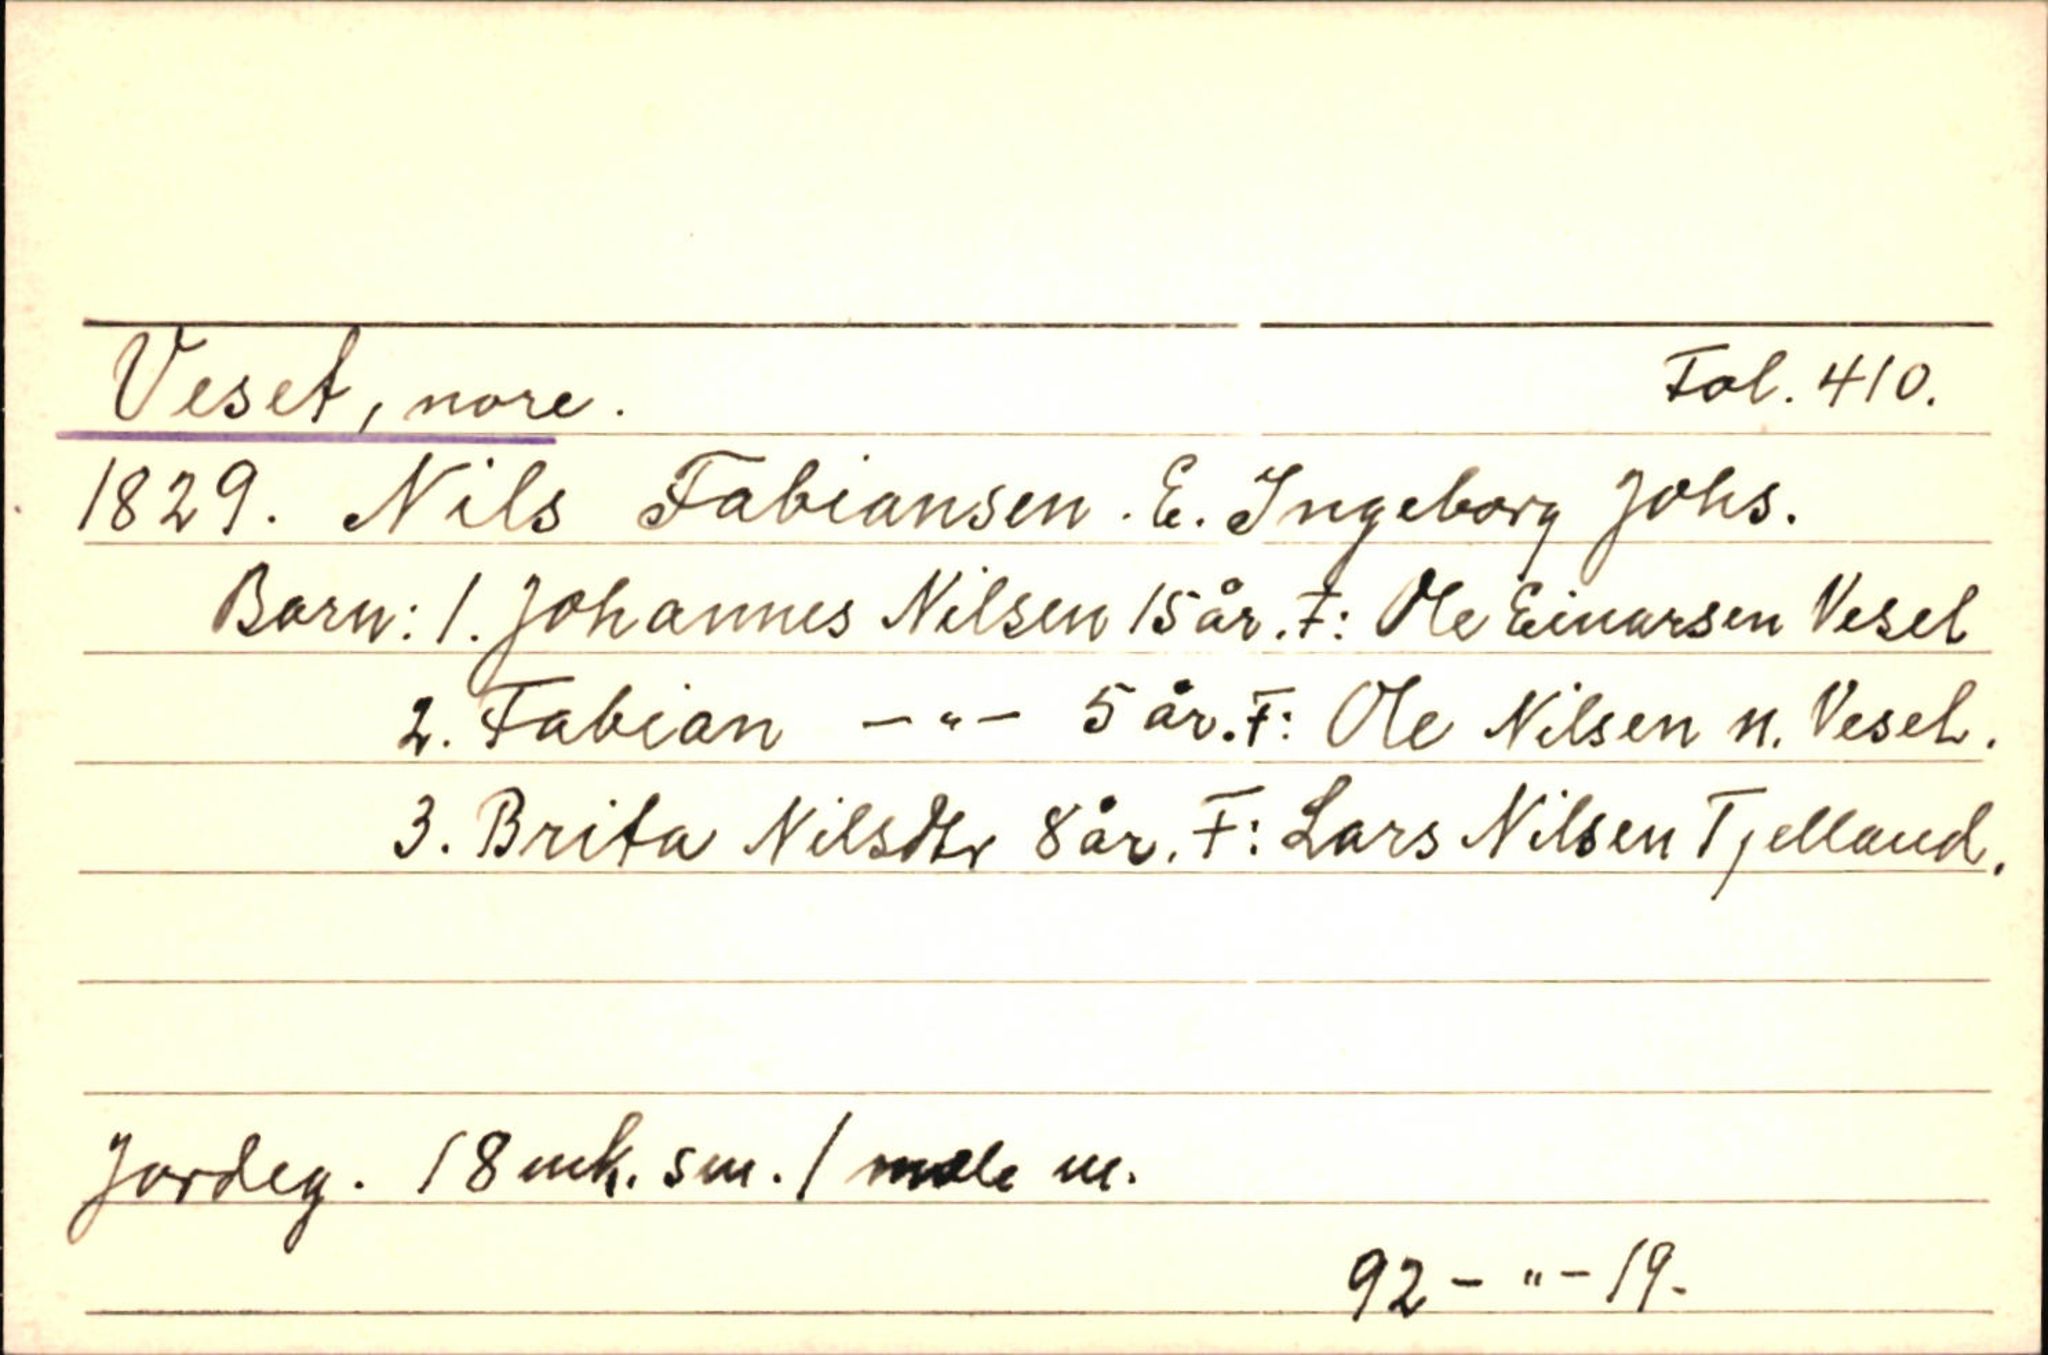 Veset, nore. Fol. 410.
1829. Nils Fabiansen. E. Ingeborg Johs.
Barn: 1. Johannes Nilsen 15 år. F: Ole Einarsen Veset
2. Fabian —"— 5 år. F: Ole Nilsen n. Veset.
3. Brita Nilsdtr 8 år. F: Lars Nilsen Tjelland.
Jordeg. 18 mk. sm. 1 mele m.
92 - " - 19.